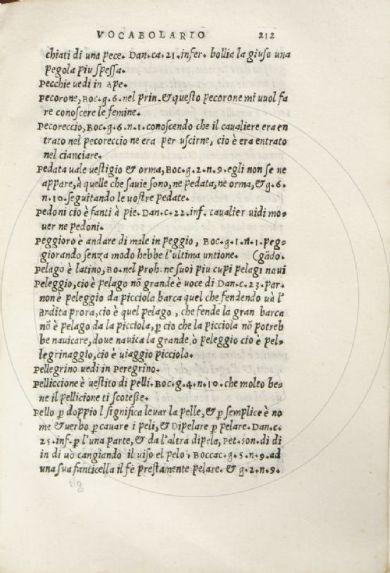 VOCABOLARIO 212
chiati di una pece. Dan.ca.21.infer. bollia la giuso una
pegola piu spessa.
Pecchie uedi in Ape.
Pecorone, Boc.g.6.nel prin.& questo pecorone mi uuol fa
re conoscere le femine.
Pecoreccio, Boc.g.6.n.1.conoscendo che il caualiere era en
trato nel pecoreccio ne era per uscirne, cio è era entrato
nel cianciare.
Pedata uale uestigio & orma, Boc.g.2.n.9.egli non se ne
appare, à quelle che sauie sono, ne pedata, ne orma, & g.6
n.10.seguitando le uostre pedate.
Pedoni cio è fanti à pie. Dan.c.22.inf. caualier uidi mo=
uer ne pedoni.
Peggioro è andare di male in peggio, Boc.g.1.n.1.peg=
giorando senza modo hebbe l'ultima untione.
Pelago è latino, Bo.nel proh.ne suoi piu cupi pelagi naui
Peleggio, cio è pelago nō grande è uoce di Dan.c.23.Par.
non è peleggio da picciola barca quel che fendendo uà l'
ardita prora, cio è quel pelago, che fende la gran barca
nō è pelago da la picciola, p cio che la picciola nō potreb
be nauicare, doue nauica la grande, ò peleggio cio è pel=
legrinaggio, cio è uiaggio picciolo.
Pellegrino uedi in peregrino.
Pelliccione è uestito di pelli. Boc.g.4.n.10.che molto be=
ne il pellicione ti scotesse.
Pello p doppio l significa leuar la pelle, & p semplice è no
me & uerbo p cauare i peli, & Dipelare p pelare. Dan.c.
25.inf.p l'una parte, & da l'altra dipela, Pet.son.di di
in di uò cangiando il uiso el pelo, Boccac.g.5.n.9.ad
una sua fanticella il fè prestamente pelare. & g.2.n.9.